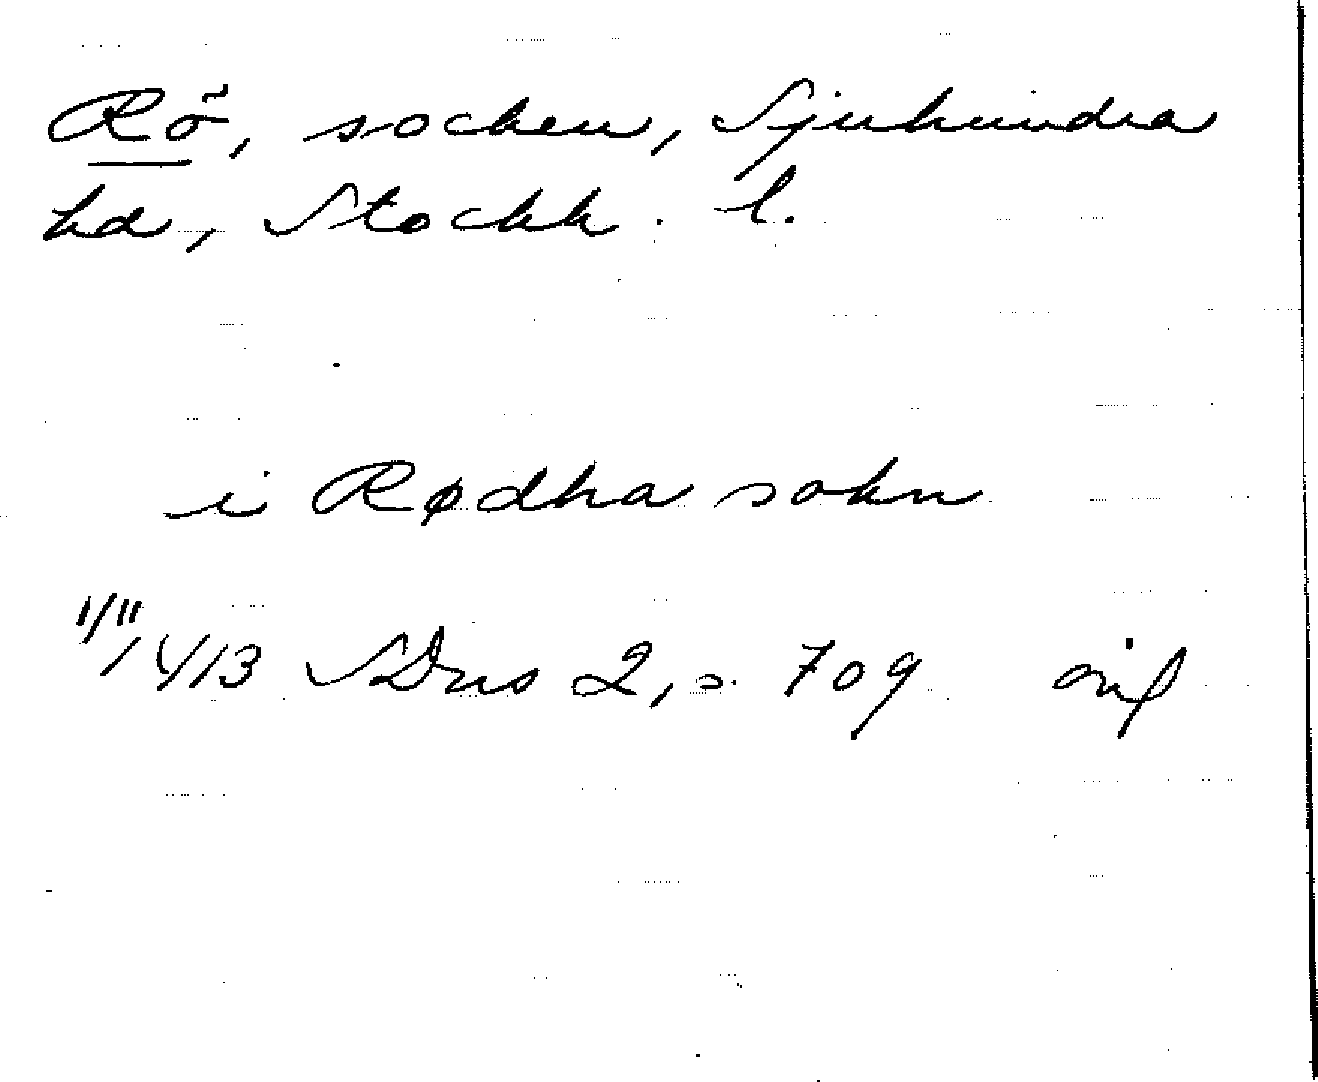 Rö, socken, Sjuhundra
hd, Stockh. l.
i Rødha sokn
1/11 1413 SDns 2, s. 709